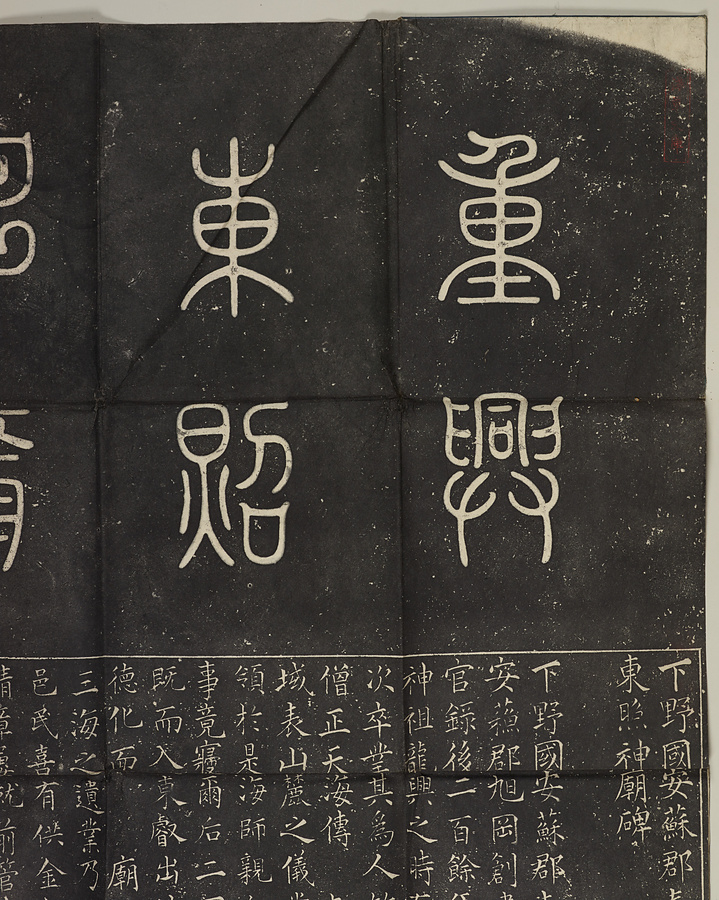 重興
東照
下野國安蘇郡
東照神廟碑
下野國安蘇郡
安蘓郡旭岡創
官錄後二百餘
神祖龍興之時
次卒業其為人
僧正天海傳
域表山麓之儀
領於是海師親
事竟寢爾后二
既而入東叡出
德化而 廟
三海之遺業乃
邑民喜有供金
就前管